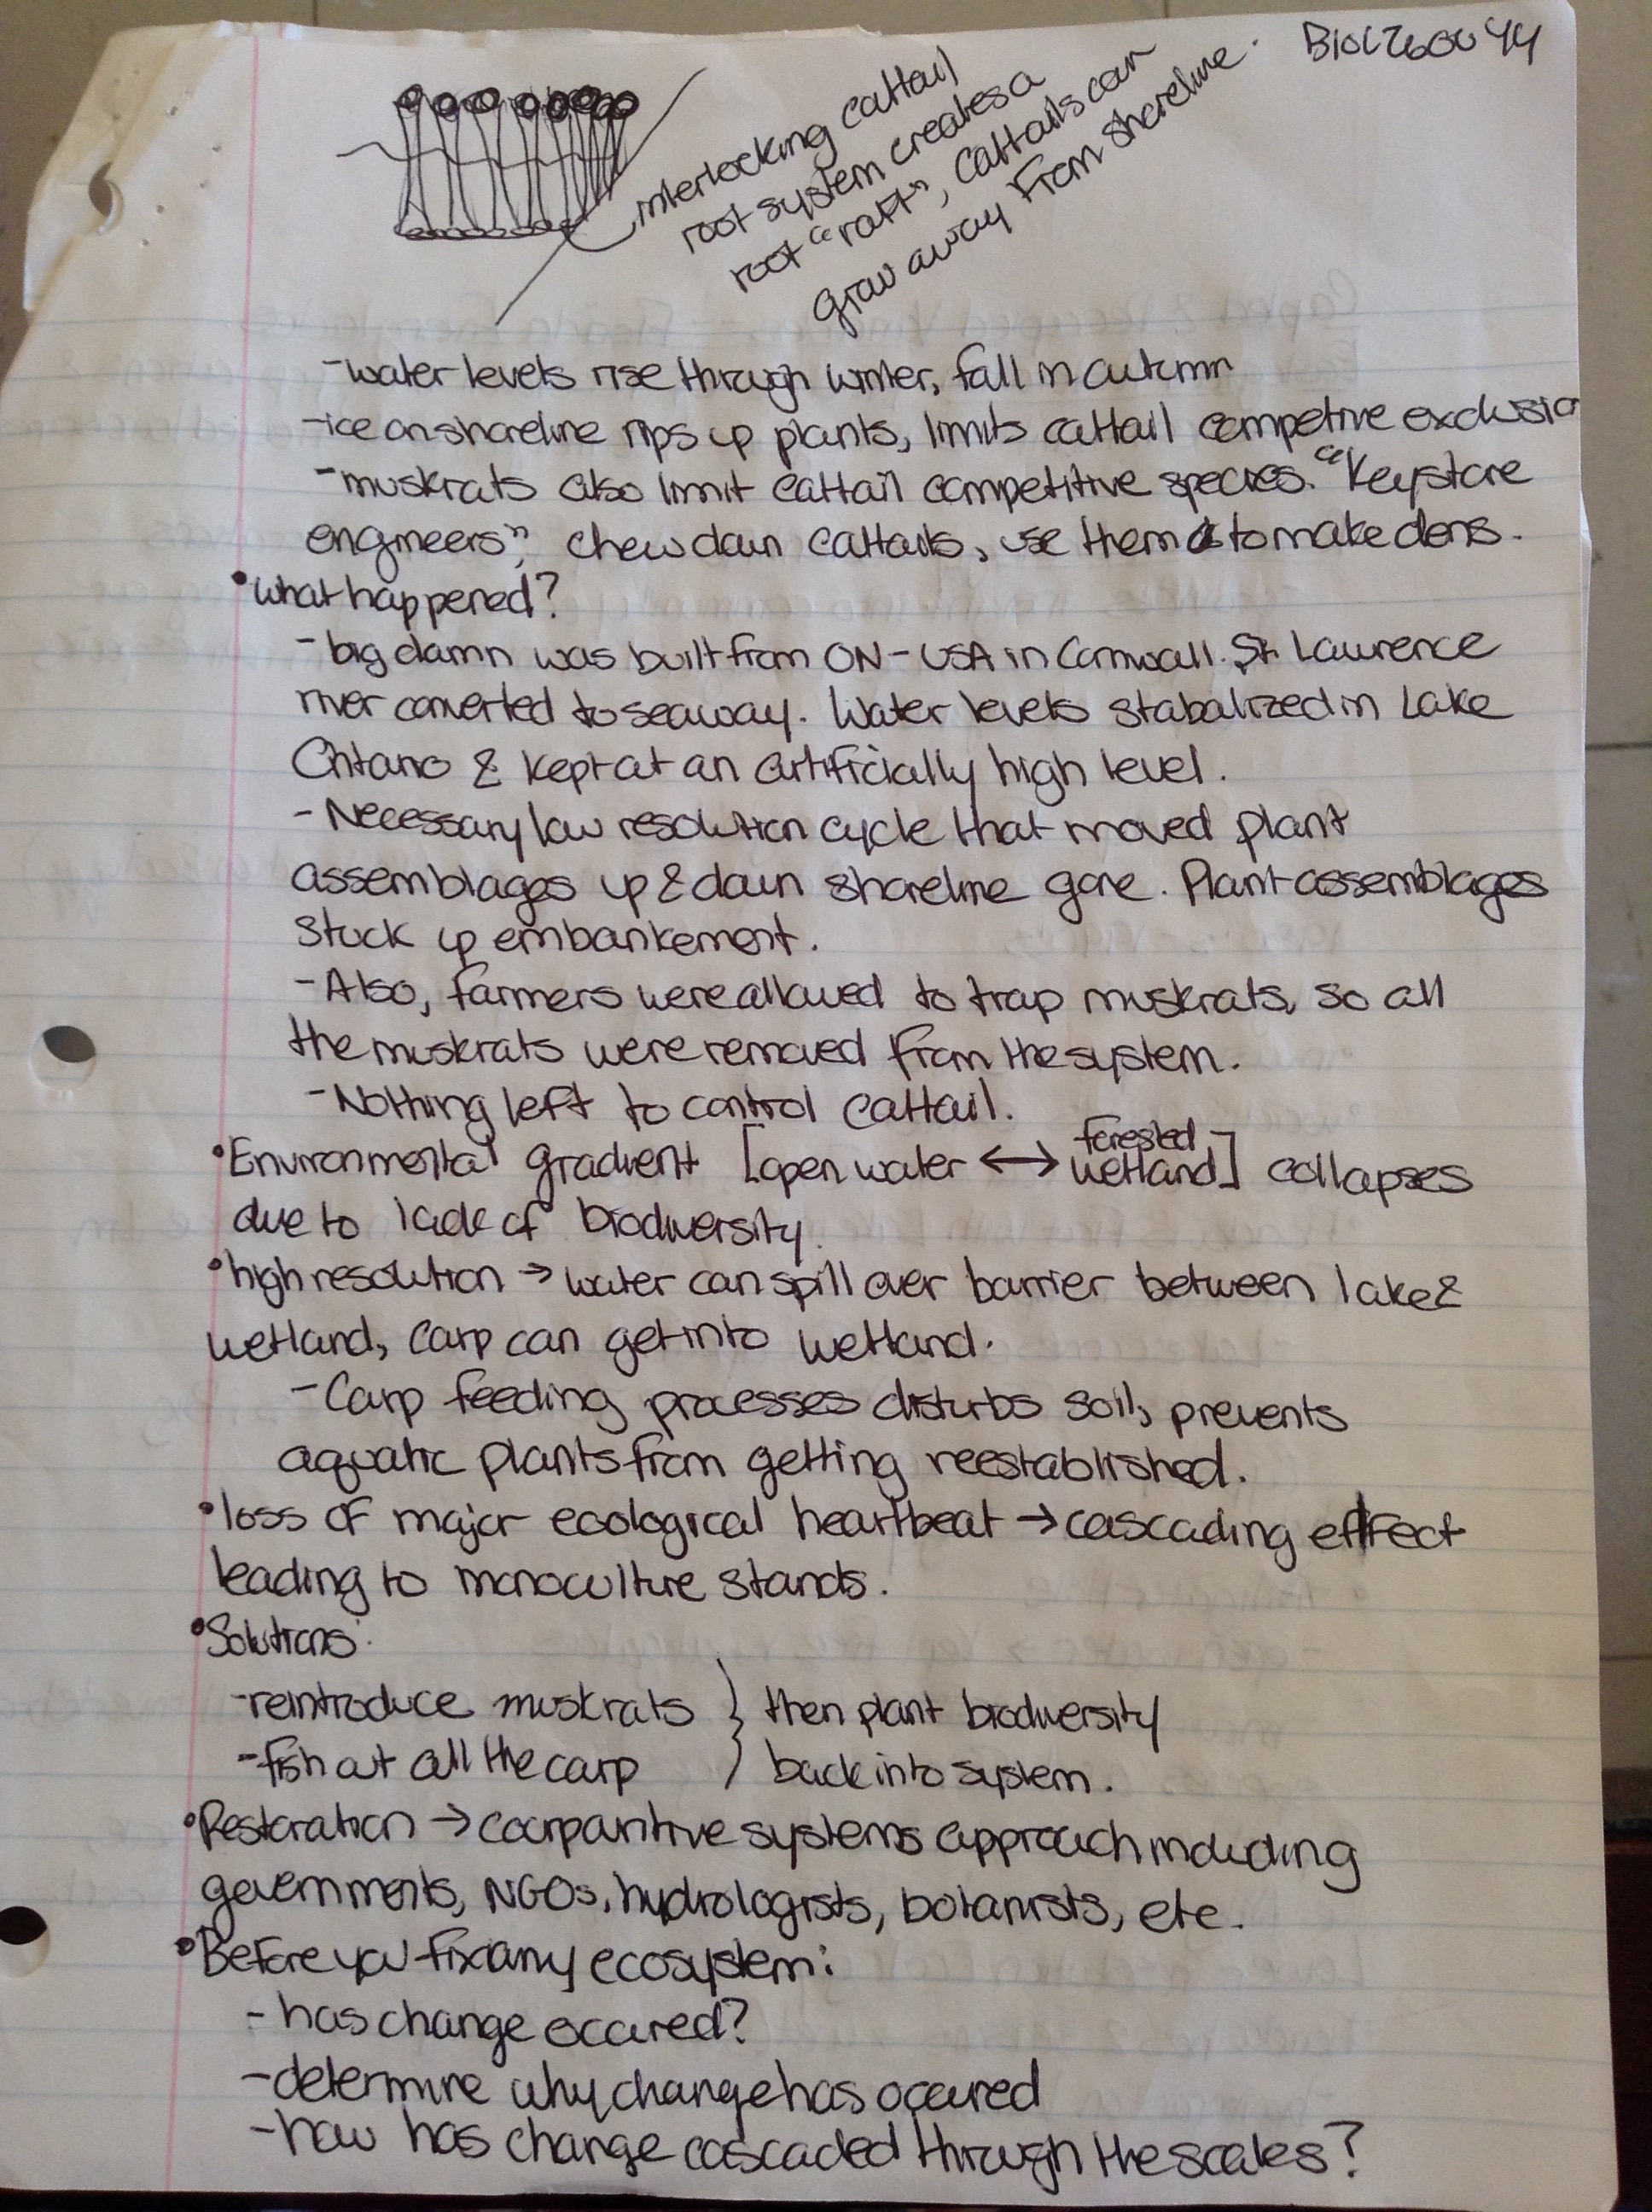 BIOL2600 44
interlocking cattail
root system creates a
root "raft", cattails can
grow away from shoreline.
- water levels rise through winter, fall in autumn
- ice on shoreline rips up plants, limits cattail competive exclusio
- muskrats also limit cattail competitive species. "Keystone
engineers", chew down cattails, use them to make dens.
• What happened?
- big damn was built from ON - USA in Cornwall. St. Lawrence
river converted to seaway. Water levels stabalized in Lake
Ontario & kept at an artificially high level.
- Necessary low resolution cycle that moved plant
assemblages up & down shoreline gone. Plant assemblages
stuck up embankement.
- Also, farmers were allowed to trap muskrats, so all
the muskrats were removed from the system.
- Nothing left to control cattail.
• Environmental gradient [open water ↔ forested wetland] collapses
due to lack of biodiversity.
• high resolution → water can spill over barrier between lake &
wetland, carp can get into wetland.
- Carp feeding processes disturbs soil, prevents
aquatic plants from getting reestablished.
• loss of major ecological heartbeat → cascading effect
leading to monoculture stands.
• Solutions:
- reintroduce muskrats } then plant biodiversity
- fish out all the carp } back into system.
• Restoration → comparitive systems approach including
governments, NGOs, hydrologists, botanists, etc.
• Before you fix any ecosystem:
- has change occured?
- determine why change has occured
- how has change cascaded through the scales?